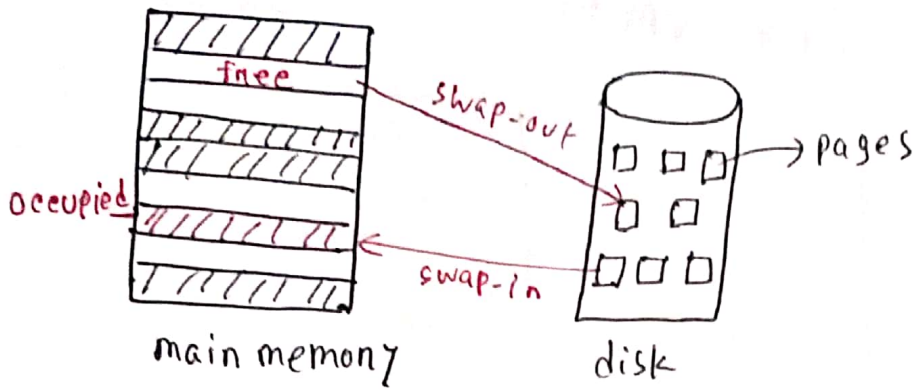 free
swap-out
pages
occupied
swap-in
main memory
disk